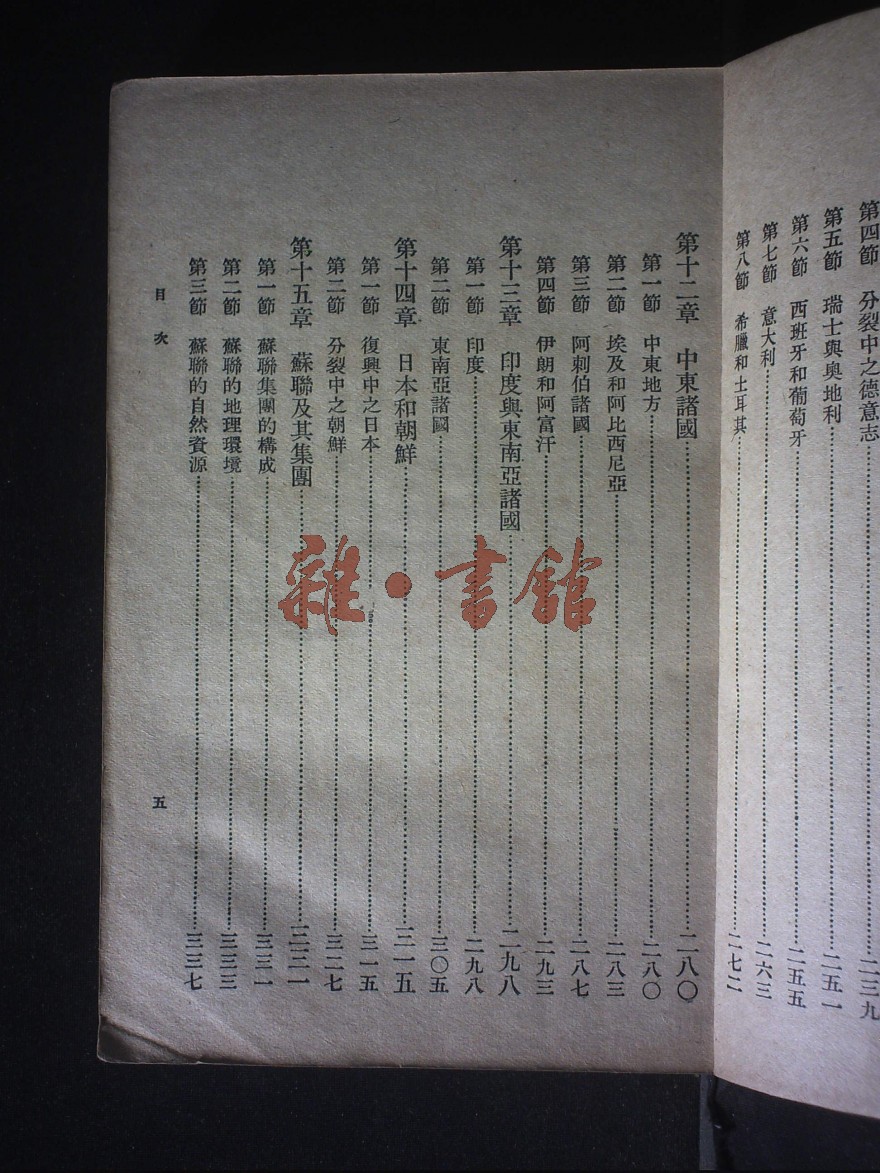 第四節 分裂中之德意志……二三九
第五節 瑞士與奧地利……二五一
第六節 西班牙和葡萄牙……二五五
第七節 意大利……二六三
第八節 希臘和土耳其……二七二
第十二章 中東諸國……二八〇
第一節 中東地方……二八〇
第二節 埃及和阿比西尼亞……二八三
第三節 阿剌伯諸國……二八七
第四節 伊朗和阿富汗……二九三
第十三章 印度與東南亞諸國……二九八
第一節 印度……二九八
第二節 東南亞諸國……三〇五
第十四章 日本和朝鮮……三一五
第一節 復興中之日本……三一五
第二節 分裂中之朝鮮……三二七
第十五章 蘇聯及其集團……三三一
第一節 蘇聯集團的構成……三三一
第二節 蘇聯的地理環境……三三三
第三節 蘇聯的自然資源……三三七
目次
五
雜·書館